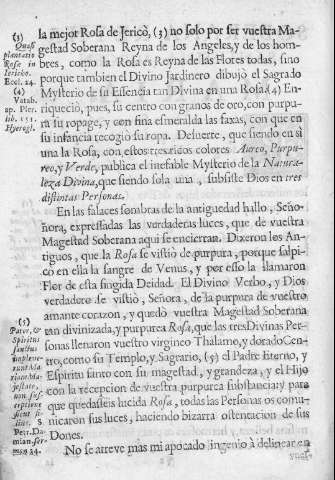 (3)
Quasi
plantatio
Rosa in
Iericho.
Eccl. 24.
(4)
Vatab.
ap. Pier.
lib. 151.
Hyerogl.
la mejor Rosa de Jericò, (3) no solo por ser vuestra Ma-
gestad Soberana Reyna de los Angeles, y de los hom-
bres, como la Rosa es Reyna de las Flores todas, sino
porque tambien el Divino Jardinero dibujò el Sagrado
Mysterio de su Essencia tan Divina en una Rosa. (4) En-
riqueciò, pues, su centro con granos de oro, con purpu-
ra su ropage, y con fina esmeralda las faxas, con que en
su infancia recogiò su ropa. Desuerte, que siendo en sì
una la Rosa, con estos tres ricos colores Aureo, Purpu-
reo, y Verde, publica el inefable Mysterio de la Natura-
leza Divina, que siendo sola una, subsiste Dios en tres
distintas Personas.
En las falaces sombras de la antiguedad hallo, Seño-
ñora, expressadas las verdaderas luces, que de vuestra
Magestad Soberana aqui se encierran. Dixeron los An-
tiguos, que la Rosa se vistiò de purpura, porque salpi-
cò en ella la sangre de Venus, y por esso la llamaron
Flor de esta fingida Deidad. El Divino Verbo, y Dios
verdadero se vistiò, Señora, de la purpura de vuestro
amante corazon, y quedò vuestra Magestad Soberana
tan divinizada, y purpurea Rosa, que las tres Divinas Per-
sonas llenaron vuestro virgineo Thalamo, y dorado Cen-
tro, como su Templo, y Sagrario, (5) el Padre Eterno, y
Espiritu santo con su magestad, y grandeza, y el Hijo
con la recepcion de vuestra purpurea substancia; y para
que quedasseis lucida Rosa, todas las Personas os comu-
nicaron sus luces, haciendo bizarra ostentacion de sus
Dones.
(5)
Pater, &
Spiritus
sanctus
implene-
runt
jestate,
non sus-
ceptione
S.
Petr. Da-
mian ser-
mon 24.
No se atreve mas mi apocado ingenio à delinear en